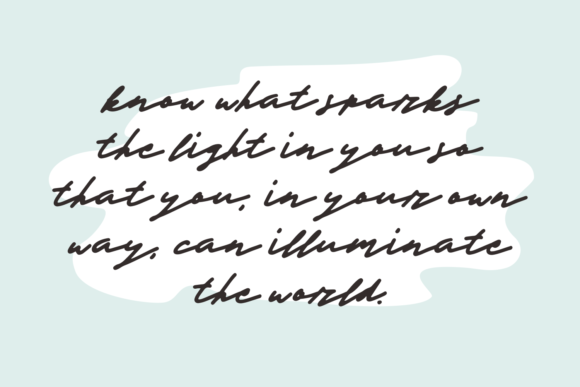 know what sparks
the light in you so
that you, in your own
way, can illuminate
the world.